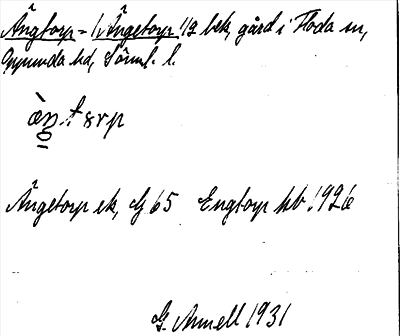 Ängtorp = 1, Ängetorp 1/2 bek, gård i Floda sn,
Oppunda hd, Sörml. l.
Ängetorp ek, G 65 Engtorp kb 1926
G. Annell 1931